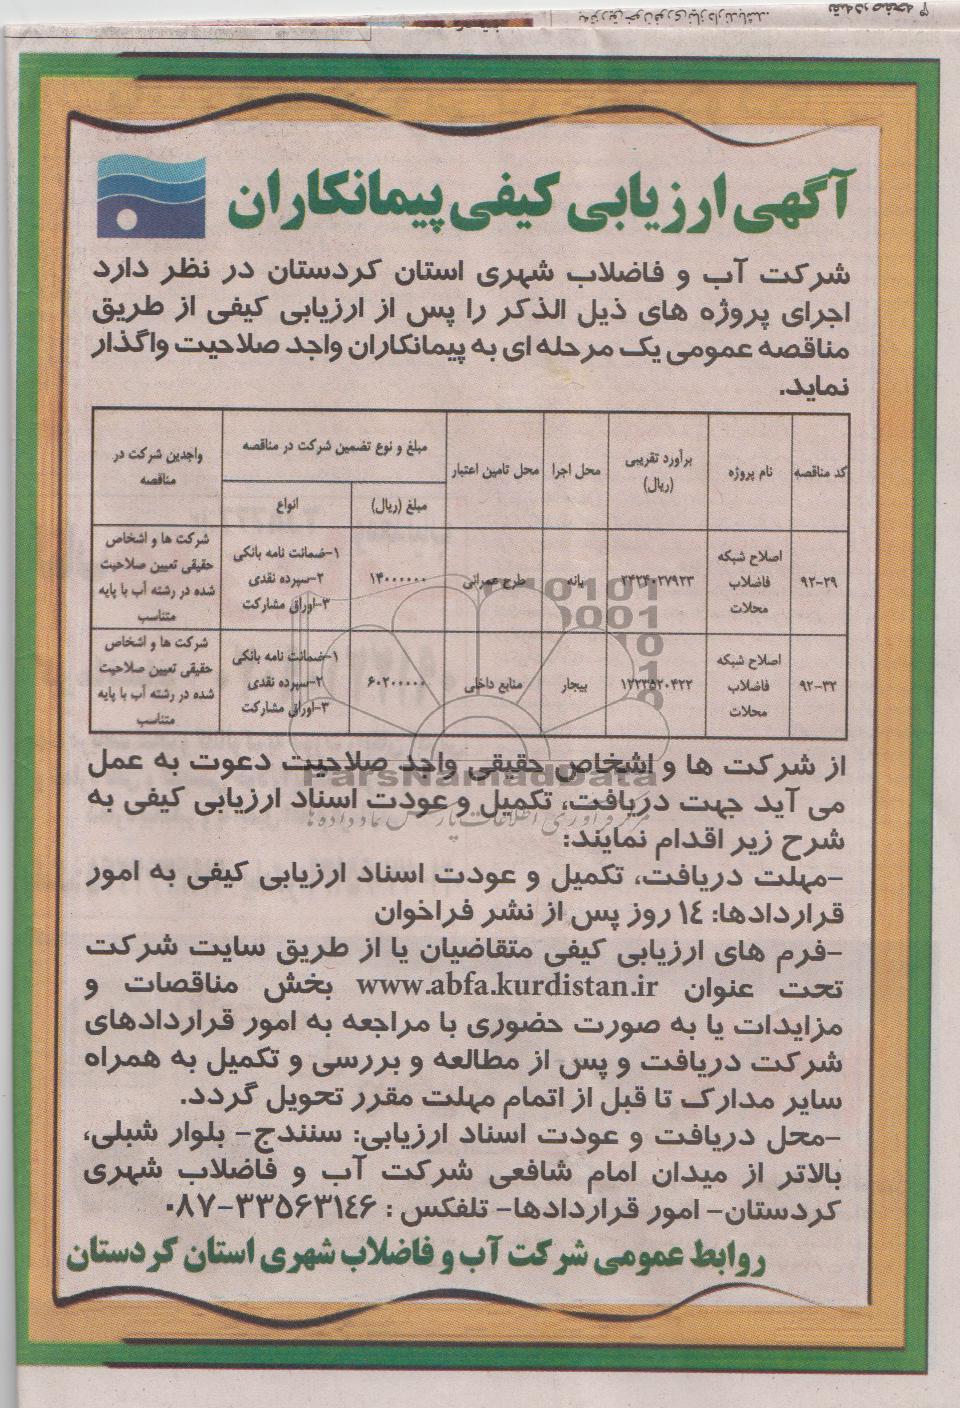 آگهی ارزیابی کیفی پیمانکاران
شرکت آب و فاضلاب شهری استان کردستان در نظر دارد
اجرای پروژه های ذیل الذکر را پس از ارزیابی کیفی از طریق
مناقصه عمومی یک مرحله ای به پیمانکاران واجد صلاحیت واگذار
نماید.
کد مناقصه
نام پروژه
برآورد تقریبی
(ریال)
محل اجرا
محل تامین اعتبار
مبلغ و نوع تضمین شرکت در مناقصه
مبلغ (ریال)
انواع
واجدین شرکت در
مناقصه
۹۲-۲۹
اصلاح شبکه
فاضلاب
محلات
بانه
طرح عمرانی
۱۴۰۰۰۰۰۰
۱-ضمانت نامه بانکی
۲-سپرده نقدی
۳-اوراق مشارکت
شرکت ها و اشخاص
حقیقی تعیین صلاحیت
شده در رشته آب با پایه
متناسب
۹۲-۳۲
اصلاح شبکه
فاضلاب
محلات
۱۲۲۳۵۲۰۴۲۲
بیجار
منابع داخلی
۶۰۲۰۰۰۰۰
۱-ضمانت نامه بانکی
۲-سپرده نقدی
۳-اوراق مشارکت
شرکت ها و اشخاص
حقیقی تعیین صلاحیت
شده در رشته آب با پایه
متناسب
از شرکت ها و اشخاص حقیقی واجد صلاحیت دعوت به عمل
می آید جهت دریافت، تکمیل و عودت اسناد ارزیابی کیفی به
شرح زیر اقدام نمایند:
-مهلت دریافت، تکمیل و عودت اسناد ارزیابی کیفی به امور
قراردادها: ۱۴ روز پس از نشر فراخوان
-فرم های ارزیابی کیفی متقاضیان یا از طریق سایت شرکت
تحت عنوان www.abfa.kurdistan.ir بخش مناقصات و
مزایدات یا به صورت حضوری با مراجعه به امور قراردادهای
شرکت دریافت و پس از مطالعه و بررسی و تکمیل به همراه
سایر مدارک تا قبل از اتمام مهلت مقرر تحویل گردد.
-محل دریافت و عودت اسناد ارزیابی: سنندج- بلوار شبلی،
بالاتر از میدان امام شافعی شرکت آب و فاضلاب شهری
کردستان- امور قراردادها- تلفکس : ۳۳۵۶۳۱۴۶-۰۸۷
روابط عمومی شرکت آب و فاضلاب شهری استان کردستان
ParsNamadData